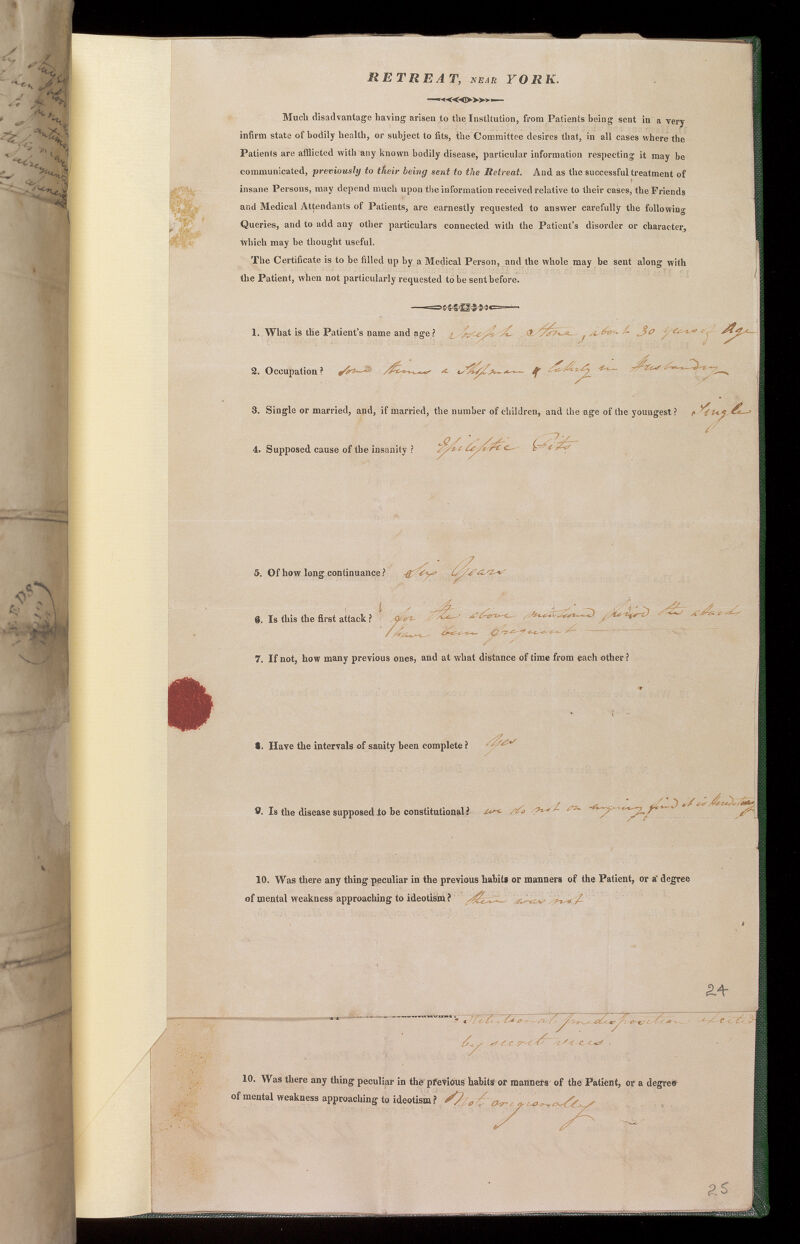 RETREAT, NEAR YORK.
Much disadvantage having arisen to the Institution, from Patients being sent in a very
infirm state of bodily health, or subject to fits, the Committee desires that, in all cases where the
Patients are afflicted with any known bodily disease, particular information respecting it may be
communicated, previously to their being sent to the Retreat. And as the successful treatment of
insane Persons, may depend much upon the information received relative to their cases, the Friends
and Medical Attendants of Patients, are earnestly requested to answer carefully the following
Queries, and to add any other particulars connected with the Patient's disorder or character,
which may be thought useful.
The Certificate is to be filled up by a Medical Person, and the whole may be sent along with
the Patient, when not particularly requested to be sent before.
1. What is the Patient's name and age? Joseph Stone, about 30 years of Age
2. Occupation? Some times a Shopman & lately in Husbandry
3. Single or married, and, if married, the number of children, and the age of the youngest? Single
4. Supposed cause of the insanity? Epileptic Fits
5. Of how long continuance? Six Years
6. Is this the first attack? for the above mentioned period the attacks
have been frequent
7. If not, how many previous ones, and at what distance of time from each other?
8. Have the intervals of sanity been complete? Yes
9. Is the disease supposed to be constitutional? we do not on enquiry find it is Hereditary
10. Was there any thing peculiar in the previous habits or manners of the Patient, or a degree
of mental weakness approaching to ideotism? there was not
24
predisposition excited
by secret vices.
10. Was there any thing peculiar in the previous habits or manners of the Patient, or a degree
of mental weakness approaching to ideotism? Not origionally
25